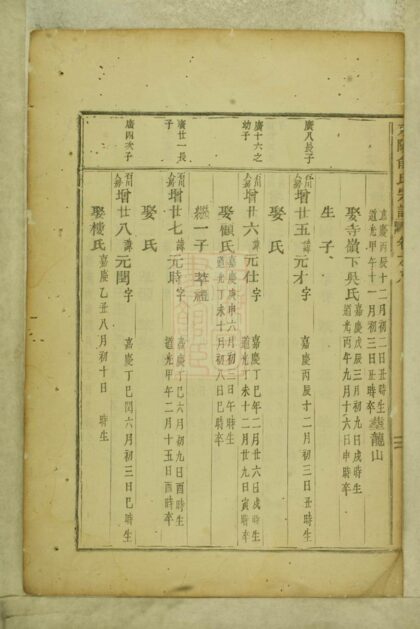 嘉慶丙辰十二月初二日丑時生
道光甲午十一月初三日丑時卒 墓龍山
娶寺嶺下吳氏 嘉慶戊辰三月初九日戌時生
道光丙午九月十六日申時卒
生子
廣八長子
增廿五 諱元才 字 嘉慶丙辰十二月初三日丑時生
娶 氏
廣十六之
幼子
增廿六 諱元仕 字 嘉慶丁巳年二月廿六日戌時生
道光丁未十二月廿九日寅時卒
娶顧氏 嘉慶庚申六月初三日午時生
道光丁未十月初八日巳時卒
繼一子 萃禮
廣廿一長
子
增廿七 諱元時 字 嘉慶丁巳六月初九日酉時生
道光甲午二月十五日酉時卒
娶 氏
廣四次子
增廿八 諱元聞 字 嘉慶丁巳閏六月初三日巳時生
娶樓氏 嘉慶乙丑八月初十日 時生